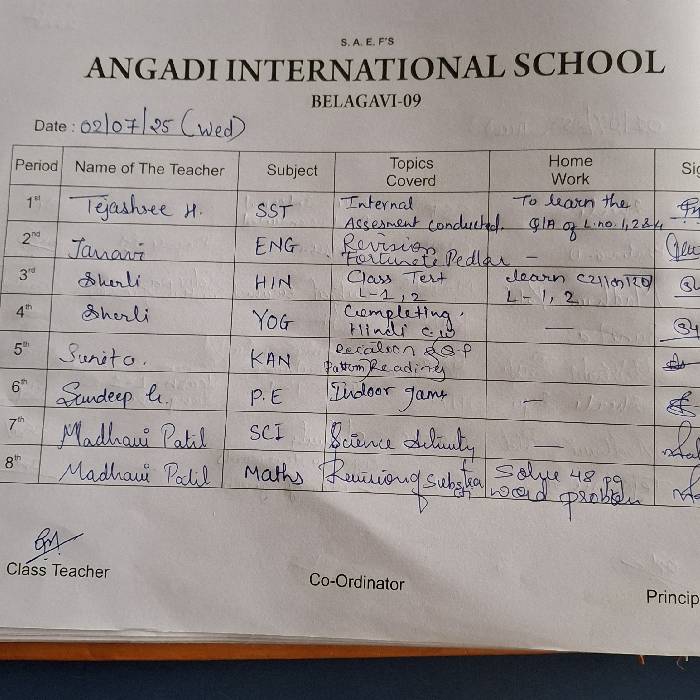 S. A. E. F'S
ANGADI INTERNATIONAL SCHOOL
BELAGAVI-09
Date : 02/07/25 (Wed)
Period Name of The Teacher Subject Topics Coverd Home Work
1st Tejashree H. SST Internal Assesment conducted. To learn the Q/A of L.no. 1, 2 & 4
2nd Janavi ENG Revision Fortunete Pedlar –
3rd Sherli HIN Class Test L-1, 2 learn L-1, 2
4th Sherli YOG Completing. Hindi cw —
5th Sunita. KAN Reading
6th Sandeep G. P.E Indoor game –
7th Madhavi Patil SCI Science Activity —
8th Madhavi Patil Maths Revision of Solve 48 pg word problem
Class Teacher
Co-Ordinator
Princip